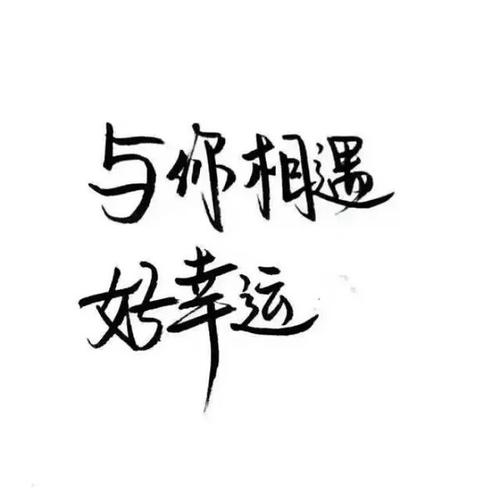 与你相遇
好幸运